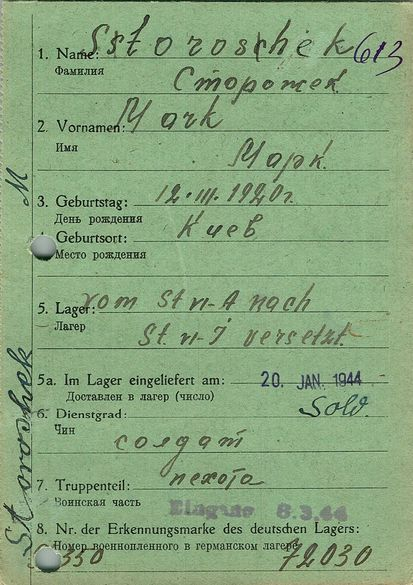 Sstoroschek 613
1. Name:
Фамилия
Сторожек
Mark
2. Vornamen:
Имя
Марк.
3. Geburtstag: 12.III.1920г.
День рождения
4. Geburtsort: Киев
Место рождения
5. Lager: vom St VI-A nach
Лагер
St. VI-J versetzt.
5a. Im Lager eingeliefert am: 20. JAN. 1944
Доставлен в лагер (число)
6. Dienstgrad: Sold.
Чин
солдат
7. Truppenteil: пехота
Воинская часть
Eingang 6.3.44
8. Nr. der Erkennungsmarke des deutschen Lagers:
Номер военнопленного в германском лагере
350 72030
Storoschek M